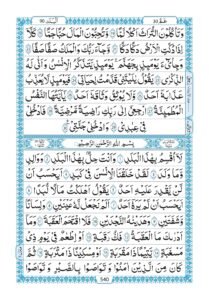 البلد ٩٠
عمّ ٣٠
وَتَأْكُلُونَ التُّرَاثَ أَكْلًا لَّمًّا وَّتُحِبُّونَ الْمَالَ حُبًّا جَمًّا كَلَّا
إِذَا دُكَّتِ الْأَرْضُ دَكًّا دَكًّا وَّجَآءَ رَبُّكَ وَالْمَلَكُ صَفًّا صَفًّا
وَجِايْٓءَ يَوْمَئِذٍۭ بِجَهَنَّمَ يَوْمَئِذٍ يَّتَذَكَّرُ الْإِنْسَانُ وَأَنّٰى لَهُ
الذِّكْرٰى يَقُولُ يٰلَيْتَنِي قَدَّمْتُ لِحَيَاتِي فَيَوْمَئِذٍ لَّا يُعَذِّبُ
عَذَابَهٗٓ أَحَدٌ وَّلَا يُوثِقُ وَثَاقَهٗٓ أَحَدٌ يٰٓأَيَّتُهَا النَّفْسُ
الْمُطْمَئِنَّةُ ارْجِعِيٓ إِلٰى رَبِّكِ رَاضِيَةً مَّرْضِيَّةً فَادْخُلِي
فِي عِبٰدِي وَادْخُلِي جَنَّتِي
بِسْمِ اللّٰهِ الرَّحْمٰنِ الرَّحِيمِ
لَآ أُقْسِمُ بِهٰذَا الْبَلَدِ وَأَنْتَ حِلٌّۢ بِهٰذَا الْبَلَدِ وَوَالِدٍ
وَّمَا وَلَدَ لَقَدْ خَلَقْنَا الْإِنْسَانَ فِي كَبَدٍ أَيَحْسَبُ أَنْ
لَّنْ يَّقْدِرَ عَلَيْهِ أَحَدٌ يَقُولُ أَهْلَكْتُ مَالًا لُّبَدًا
أَيَحْسَبُ أَنْ لَّمْ يَرَهٗٓ أَحَدٌ أَلَمْ نَجْعَلْ لَّهٗ عَيْنَيْنِ وَلِسَانًا
وَّشَفَتَيْنِ وَهَدَيْنٰهُ النَّجْدَيْنِ فَلَا اقْتَحَمَ الْعَقَبَةَ وَمَآ
أَدْرٰىكَ مَا الْعَقَبَةُ فَكُّ رَقَبَةٍ أَوْ إِطْعٰمٌ فِي يَوْمٍ ذِي
مَسْغَبَةٍ يَّتِيمًا ذَا مَقْرَبَةٍ أَوْ مِسْكِينًا ذَا مَتْرَبَةٍ ثُمَّ
كَانَ مِنَ الَّذِينَ آمَنُوا وَتَوَاصَوْا بِالصَّبْرِ وَتَوَاصَوْا
540